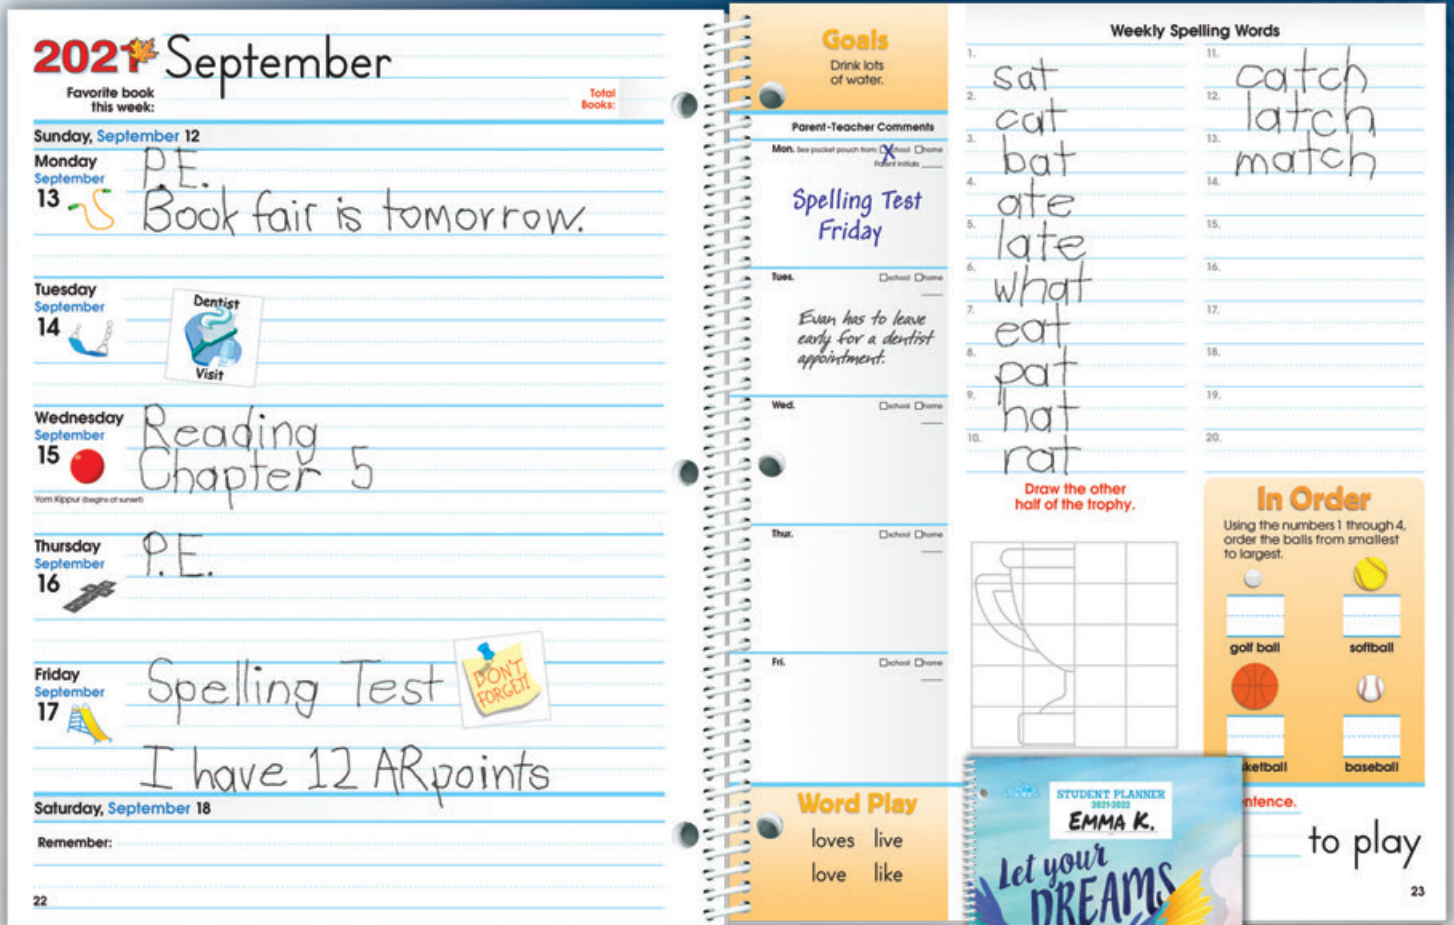 2021 September
Favorite book
this week:
Total
Books:
Sunday, September 12
Monday
September
13
P.E.
Book fair is tomorrow.
Tuesday
September
14
Dentist
Visit
Wednesday
September
15
Reading
Chapter 5
Yom Kippur (begins at sunset)
Thursday
September
16
P.E.
Friday
September
17
Spelling Test
DON'T
FORGET!
I have 12 AR points
Saturday, September 18
Remember:
22
Goals
Drink lots
of water.
Parent-Teacher Comments
Mon. See pocket pouch from: school home
Parent Initials
Spelling Test
Friday
Tues. school home
Evan has to leave
early for a dentist
appointment.
Wed. school home
Thur. school home
Fri. school home
Word Play
loves live
love like
Weekly Spelling Words
1. sat
2. cat
3. bat
4. ate
5. late
6. what
7. eat
8. pat
9. hat
10. rat
11. catch
12. latch
13. match
14.
15.
16.
17.
18.
19.
20.
Draw the other
half of the trophy.
In Order
Using the numbers 1 through 4,
order the balls from smallest
to largest.
golf ball
softball
sketball
baseball
ntence.
to play
23
STUDENT PLANNER
2021-2022
EMMA K.
Let your
DREAMS